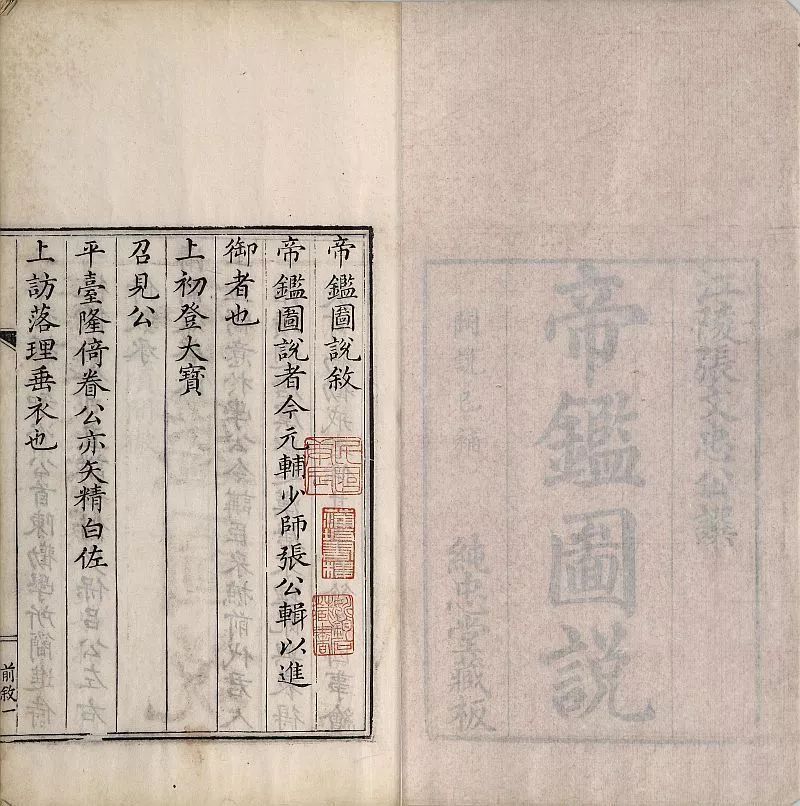 張文忠公
帝鑑圖說
純忠堂藏板
帝鑑圖說敘
帝鑑圖說者今元輔少師張公輯以進
御者也
上初登大寶
召見公
平臺隆倚眷公亦矢精白佐
上訪落理垂衣也
前敘一